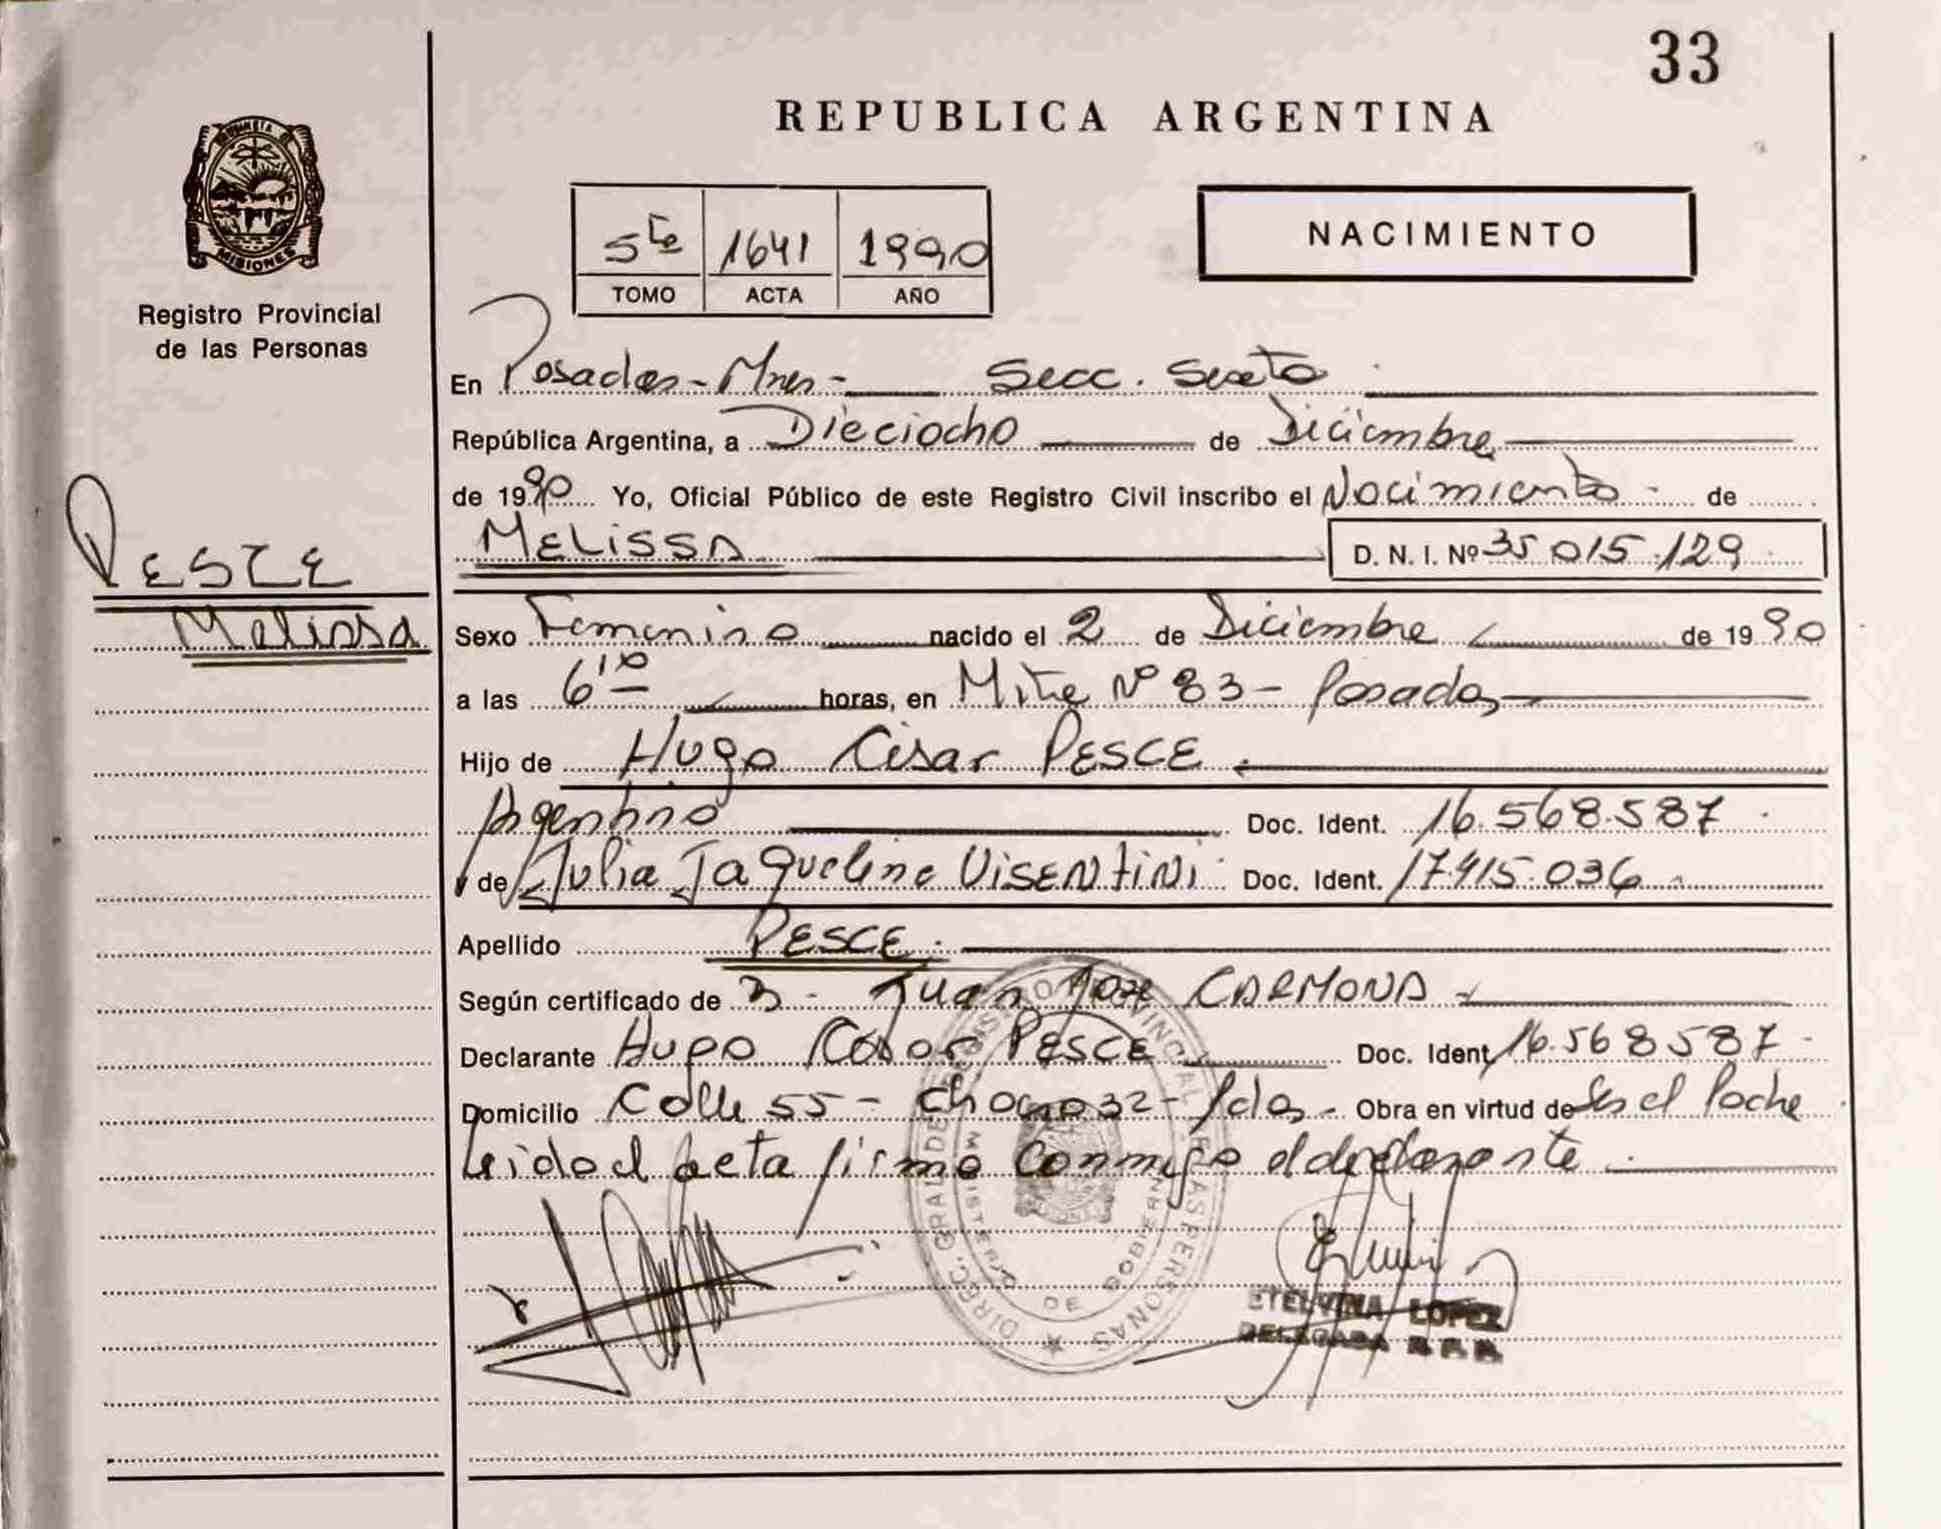 33
REPUBLICA ARGENTINA
MISIONES
Registro Provincial
de las Personas
5to 1641 1990
TOMO ACTA AÑO
NACIMIENTO
En Posadas - Mnes - Secc. Sexta
República Argentina, a Dieciocho de Diciembre
de 1990 Yo, Oficial Público de este Registro Civil inscribo el Nacimiento de
MELISSA D. N. I. Nº 35.015.129
PESCE
Melissa
Sexo Femenino nacido el 2 de Diciembre de 1990
a las 6'10 horas, en Mitre Nº 83 - Posadas
Hijo de Hugo César PESCE
Argentino Doc. Ident. 16.568.587
y de Julia Jaqueline VISENTINI Doc. Ident. 17.415.036
Apellido PESCE
Según certificado de Juan José CARMONA
Declarante Hugo César PESCE Doc. Ident. 16.568.587
Domicilio Calle 55 - Chacra 32 - Pdas - Obra en virtud de Ser el Padre
Leida el acta firma conmigo el declarante
DIREC. GRAL DE REGISTRO PROVINCIAL DE LAS PERSONAS
MINISTERIO DE GOBIERNO
ETELVINA LOPEZ
DELEGADA R. P. P.